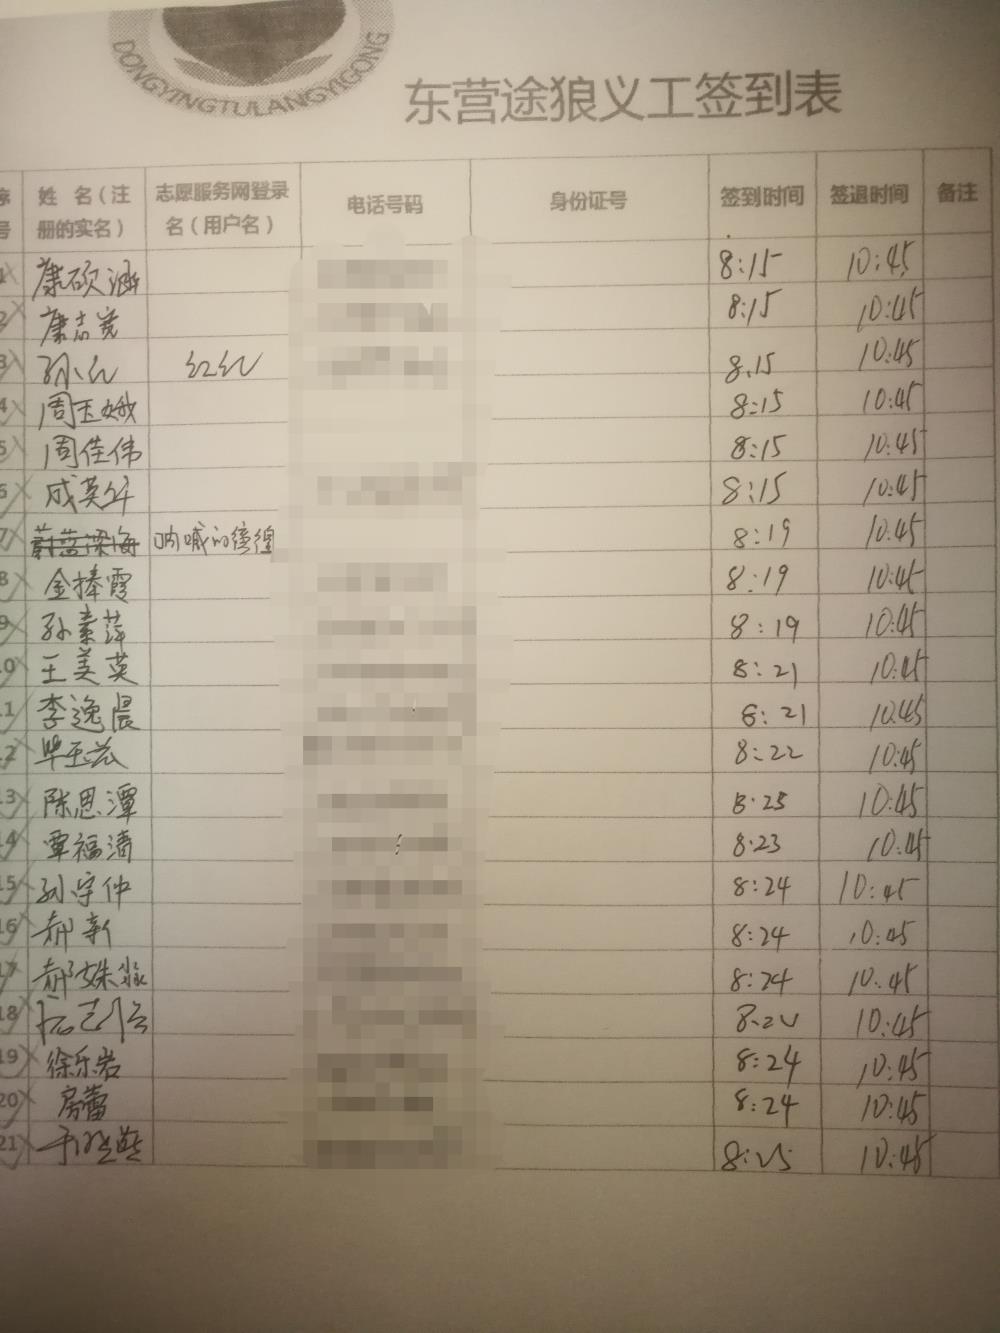 DONGYINGTULANGYIGONG
东营途狼义工签到表
序号 姓 名（注册的实名） 志愿服务网登录名（用户名） 电话号码 身份证号 签到时间 签退时间 备注
1 康硕涵 8:15 10:45
2 康志亮 8:15 10:45
3 孙红 红红 8:15 10:45
4 周玉娥 8:15 10:45
5 周佳伟 8:15 10:45
6 成英华 8:15 10:45
7 蔚蓝深海 呐喊的 8:19 10:45
8 金捧霞 8:19 10:45
9 孙素萍 8:19 10:45
10 王美英 8:21 10:45
11 李逸晨 8:21 10:45
12 毕玉兰 8:22 10:45
13 陈思潭 8:25 10:45
14 覃福清 8:23 10:45
15 孙宇仲 8:24 10:45
16 郝新 8:24 10:45
17 郝姝淼 8:24 10:45
18 8:24 10:45
19 徐乐岩 8:24 10:45
20 房蕾 8:24 10:45
21 8:25 10:45